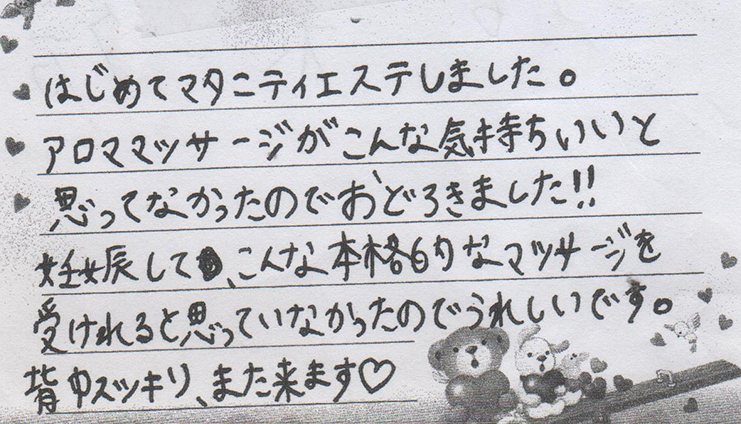 はじめてマタニティエステしました。
アロママッサージがこんな気持ちいいと
思ってなかったのでおどろきました!!
妊娠しても、こんな本格的なマッサージを
受けれると思っていなかったのでうれしいです。
背中スッキリ、また来ます♡